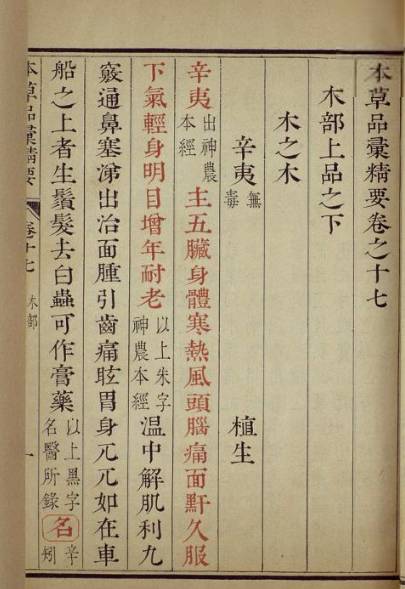 本草品彙精要卷之十七
木部上品之下
木之木
辛夷 無毒 植生
辛夷 出神農本經 主五臟身體寒熱風頭腦痛面䵟久服
下氣輕身明目增年耐老 以上朱字神農本經 温中解肌利九
竅通鼻塞涕出治面腫引齒痛眩冒身兀兀如在車
船之上者生鬚髮去白蟲可作膏藥 以上黑字名醫所錄 名 辛矧
本草品彙精要 卷十七 木部 一